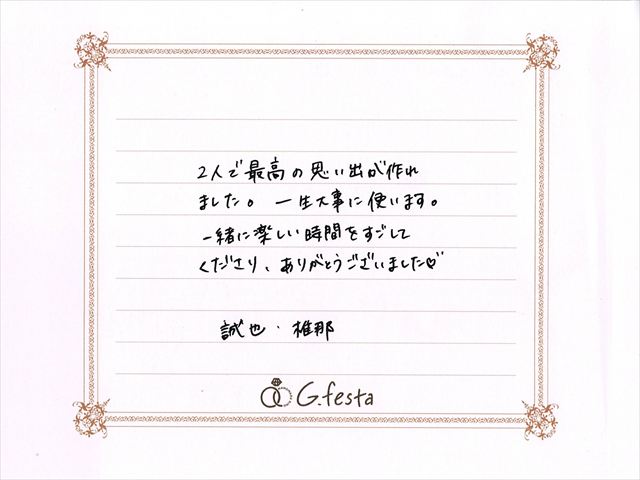 2人で最高の思い出が作れ
ました。一生大事に使います。
一緒に楽しい時間をすごして
くださり、ありがとうございました♡
誠也・椎那
G.festa